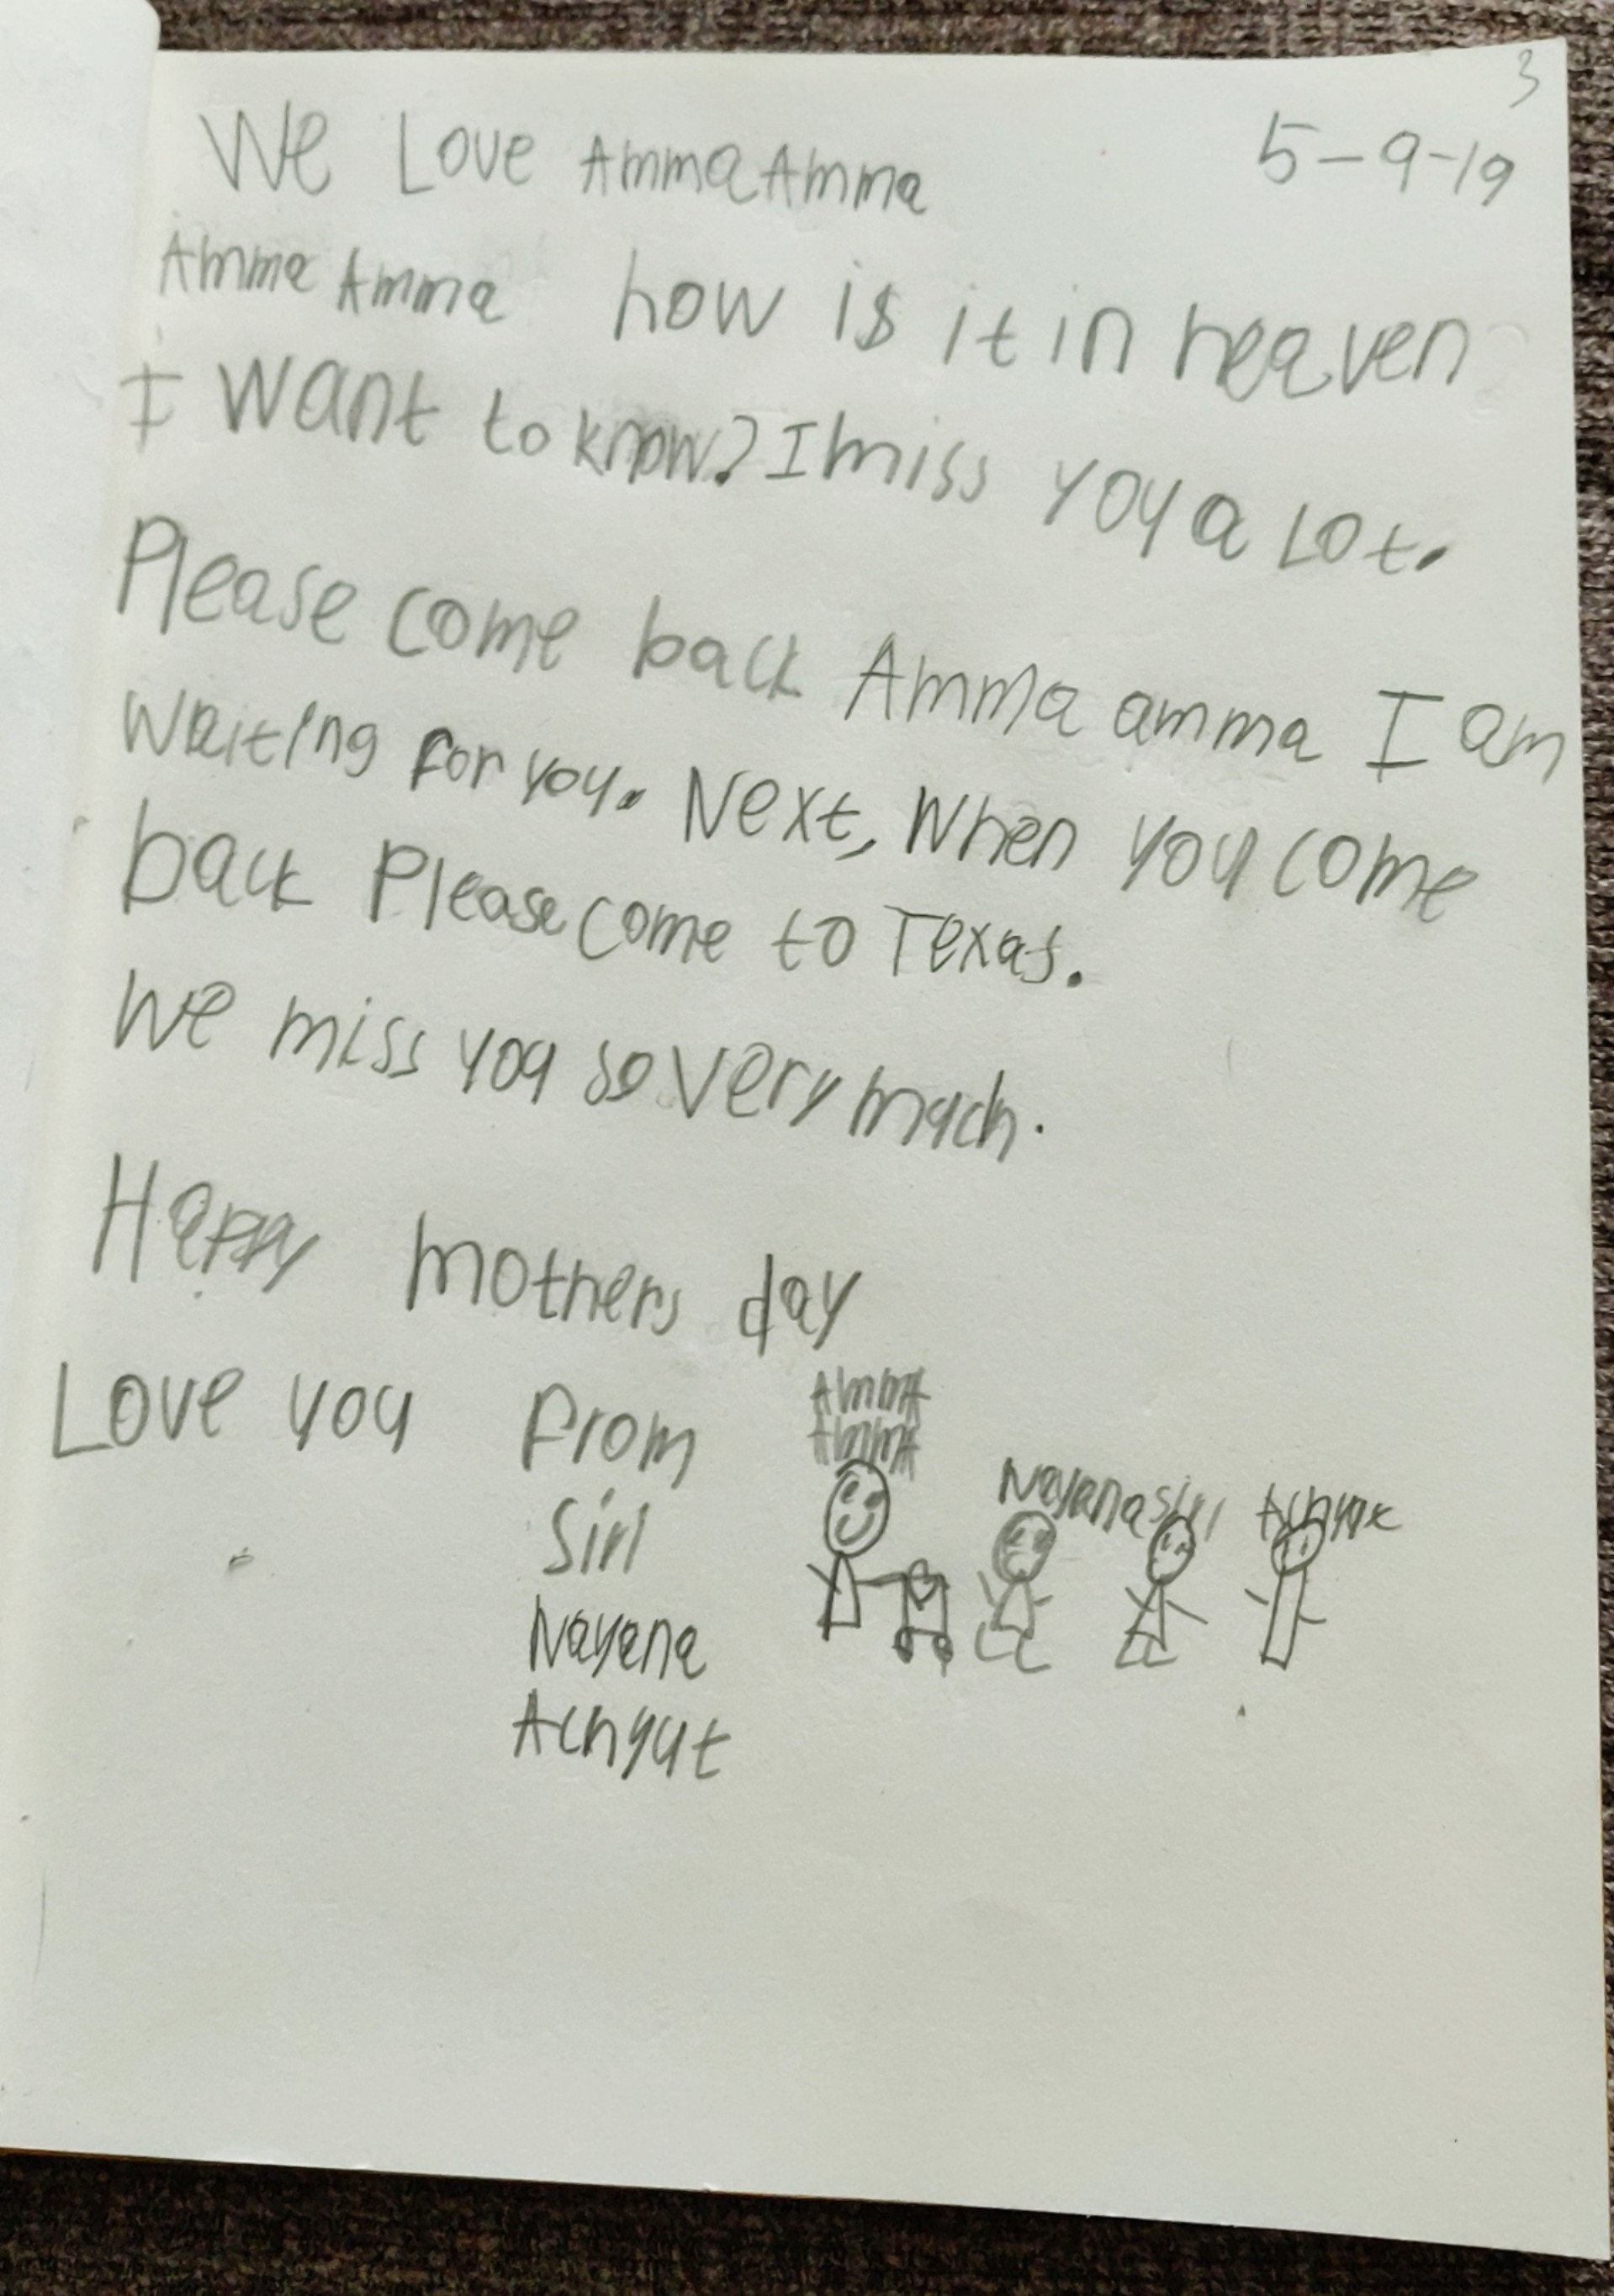 3
We Love Amma Amma 5-9-19
Amma Amma how is it in heaven
I want to know? I miss you a Lot.
Please come back Amma amma I am
waiting for you. Next, When you come
back Please come to Texas.
We miss you so very much.
Happy mothers day
Love you From
Siri
Nayana
Achyut
AMMA
AMMA
Nayana Siri Achyut